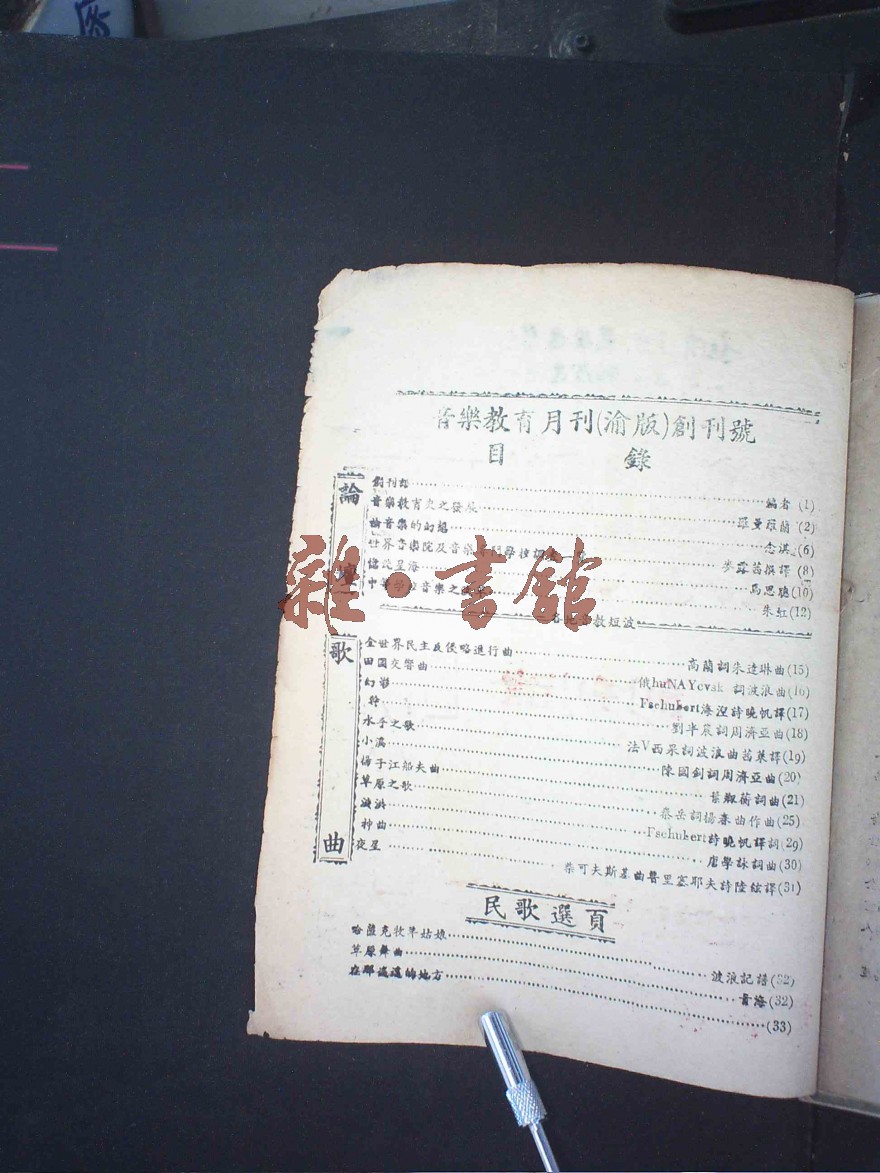 音樂教育月刊(渝版)創刊號
目錄
論
創刊話 編者 (1)
音樂教育史之發展 羅曼羅蘭 (2)
曲音樂的幻想 念淇 (6)
世界音樂院及音樂專門學校調查一 步露茜撰譯 (8)
憶冼星海 馬思聰 (10)
中華 音樂之 朱虹 (12)
各地音教短波
歌曲
全世界民主反侵略進行曲 高蘭詞朱達琳曲(15)
田園交響曲 俄huNAYevsk 詞波浪曲(16)
幻影 Fschubert海涅詩曉帆譯(17)
水手之歌 劉半農詞周濟亞曲(18)
小溪 法V西 詞波浪曲茜萊譯(19)
揚子江船夫曲 陳國釗詞周濟亞曲(20)
草原之歌 詞曲(21)
秦岳詞揚春曲作曲(25)
神曲 Fschubert詩曉帆譯詞(29)
夜星 唐學詠詞曲(30)
柴可夫斯基曲魯里塞耶夫詩陸絃譯(31)
民歌選頁
哈薩克牧羊姑娘
草原舞曲 波浪記譜(32)
在那遙遠的地方 青海(32)
(33)
雜·書館